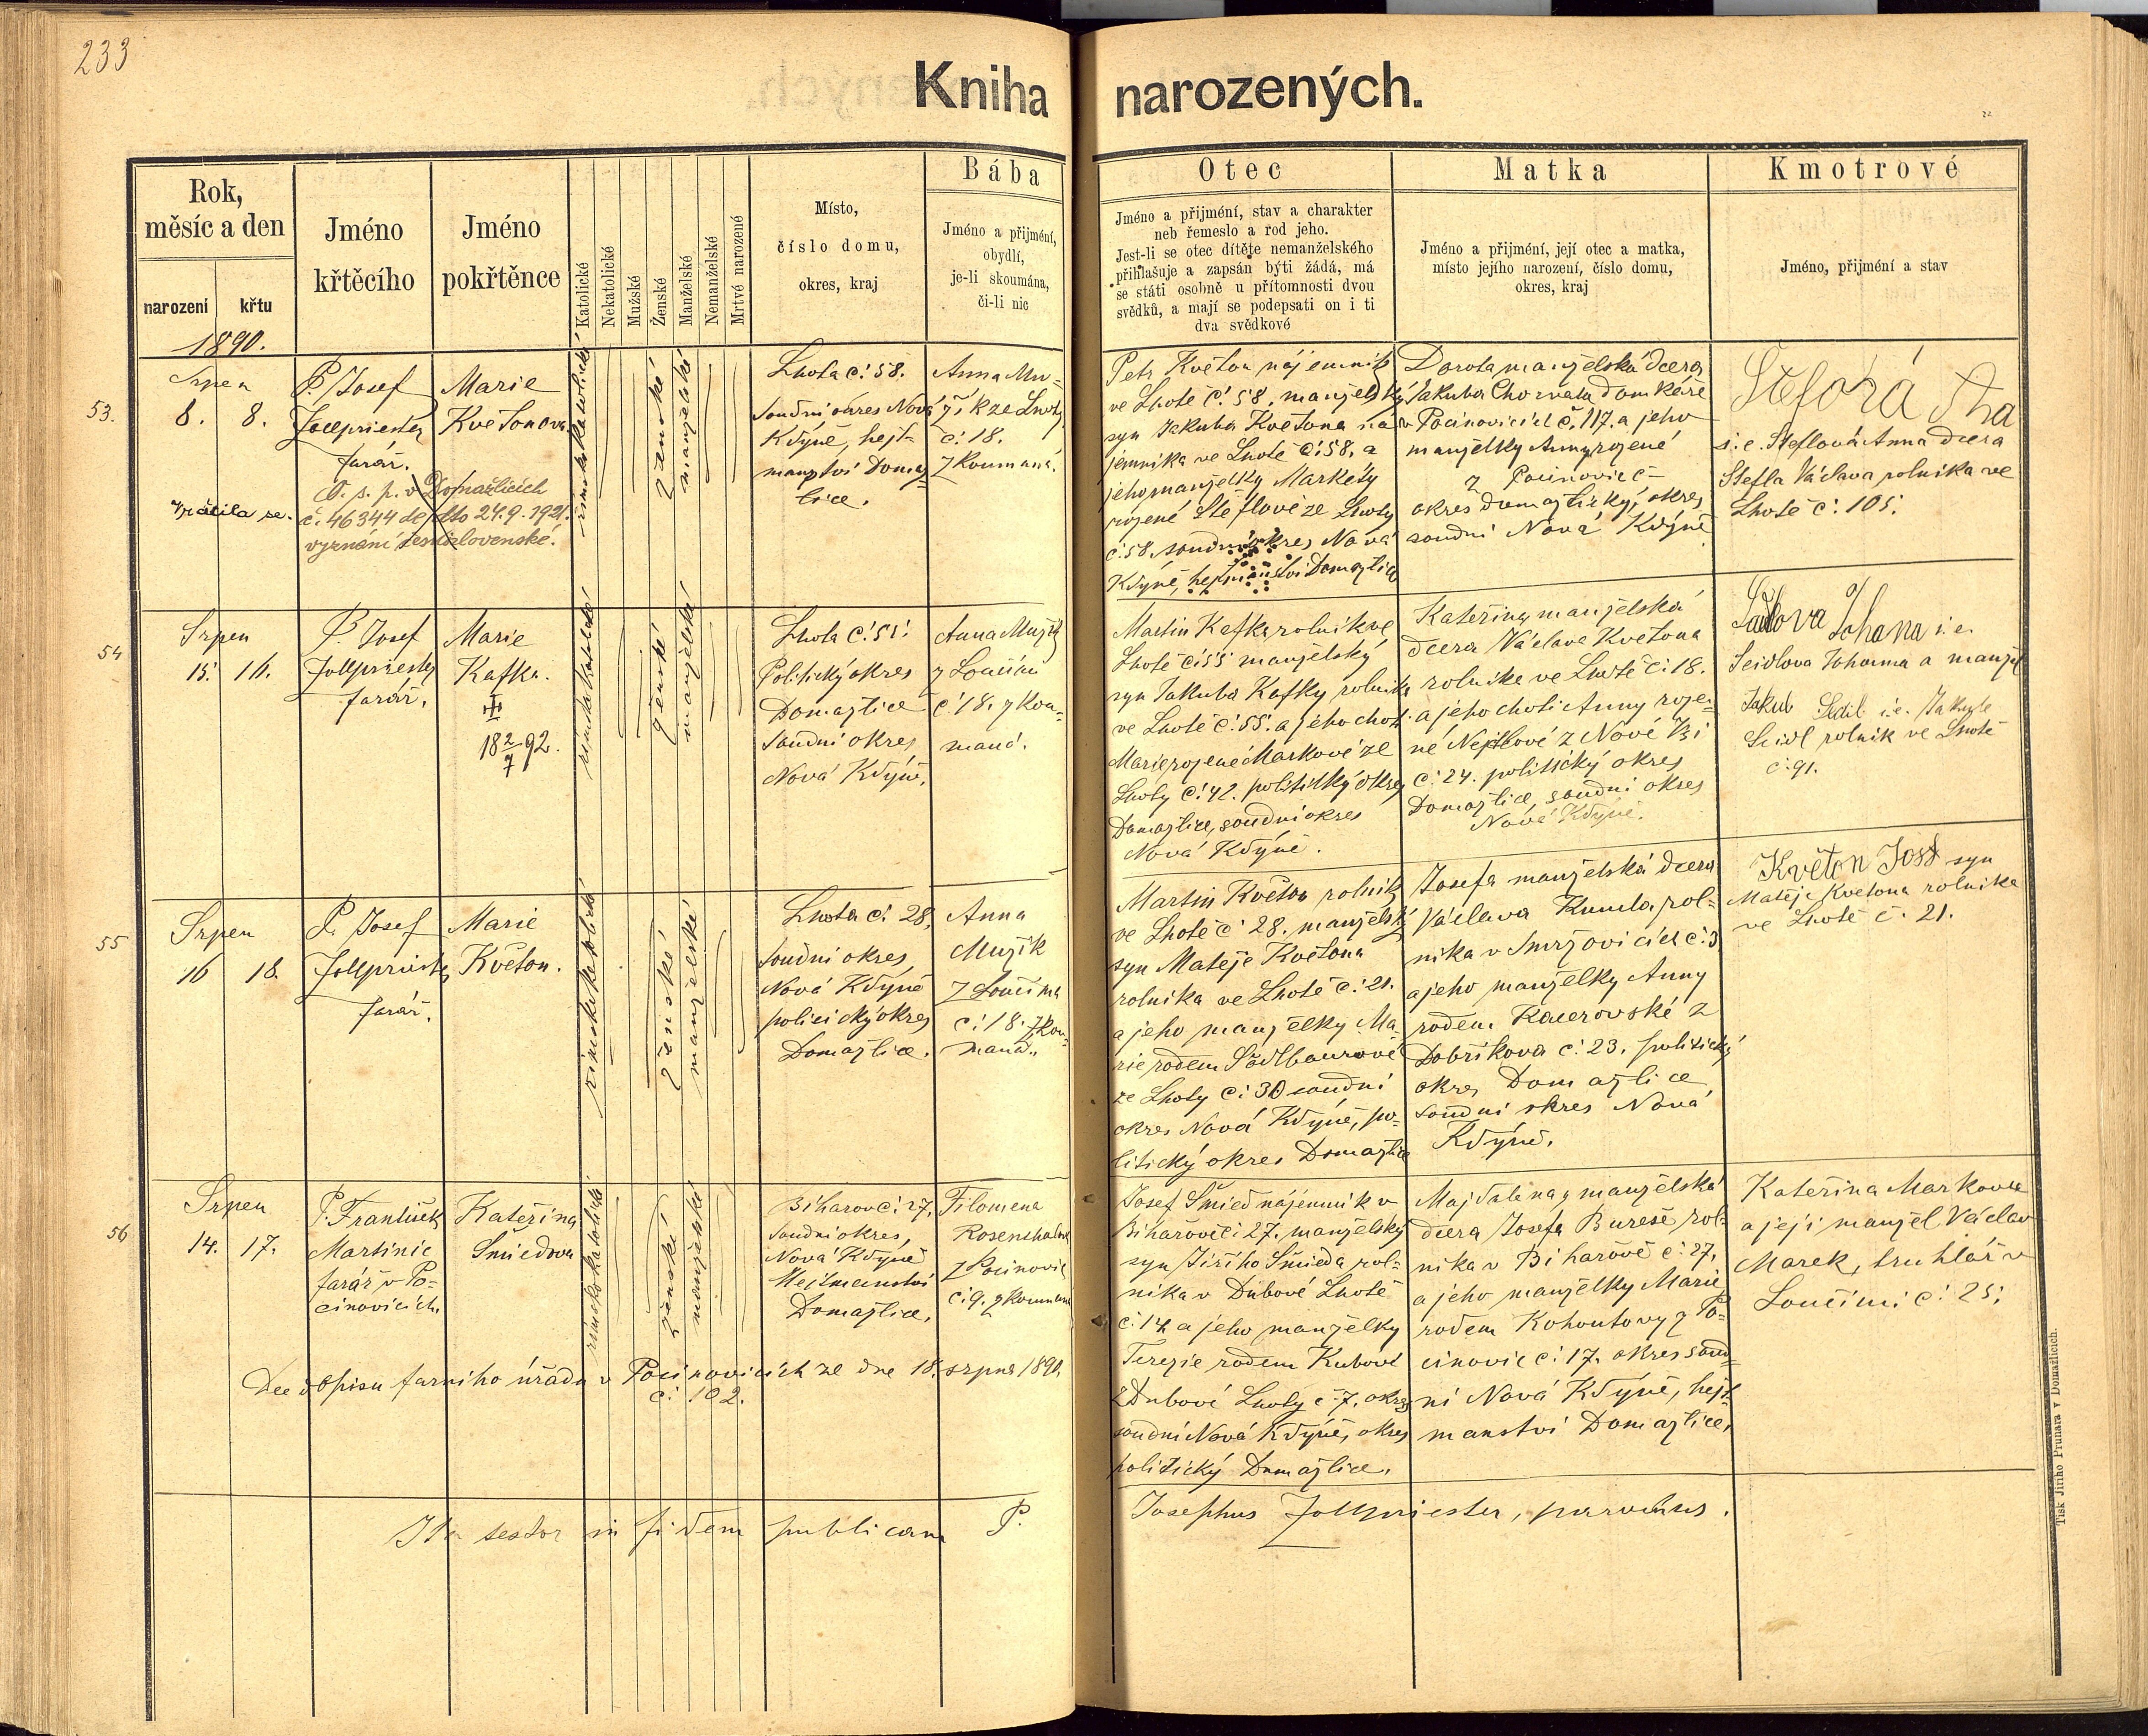 233
Kniha narozených.
Rok,
měsíc a den
narození
křtu
Jméno
křtěcího
Jméno
pokřtěnce
Katolické
Nekatolické
Mužské
Ženské
Manželské
Nemanželské
Mrtvé narozené
Místo,
číslo domu,
okres, kraj
Bába
Jméno a přijmění,
obydlí,
je-li skoumána,
či-li nic
Otec
Jméno a přijmění, stav a charakter
neb řemeslo a rod jeho.
Jest-li se otec dítěte nemanželského
přihlašuje a zapsán býti žádá, má
se státi osobně u přítomnosti dvou
svědků, a mají se podepsati on i ti
dva svědkové
Matka
Jméno a přijmění, její otec a matka,
místo jejího narození, číslo domu,
okres, kraj
Kmotrové
Jméno, přijmění a stav
1890.
53.
Srpen
8. 8.
P. Josef
Jollpriester
farář.
Marie
Květonova
římskokatolické
ženské
manželské
Lhota č. 58.
Soudní okres Nová
Kdyně, hejt-
manství Domaž-
lice.
Anna Mu-
žík ze Lhoty
č. 18.
zkoumaná.
vrátila se.
O. s. p. v Domažlicích
č. 46344 de dto 24.9.1921.
vyznání československé.
Petr Květon nájemník
ve Lhotě č. 58. manželský
syn Jakuba Květona ná-
jemníka ve Lhotě č. 58. a
jeho manželky Markety
rozené Šteflové ze Lhoty
č. 58. soudní okres Nová
Kdyně, hejtmanství Domažlice
Dorota manželská dcera
Jakuba Chorvata domkáře
v Pocinovicích č. 117. a jeho
manželky Anny rozené
z Pocinovic č
okres domažlický, okres
soudní Nová Kdyně
i. e. Šteflová Anna dcera
Štefla Václava rolníka ve
Lhotě č. 105.
54
Srpen
15. 16.
P. Josef
Jollpriester
farář.
Marie
Kafka.
18 2/7 92.
římskokatolické
ženské
manželské
Lhota č. 55.
Politický okres
Domažlice
Soudní okres
Nová Kdyně.
Anna Mužík
z Loučimi
č. 18. zkou-
maná.
Martin Kafka rolník ve
Lhotě č. 55 manželský
syn Jakuba Kafky rolníka
ve Lhotě č. 55. a jeho choti
Marie rozené Markové ze
Lhoty č. 42. politický okres
Domažlice, soudní okres
Nová Kdyně.
Kateřina, manželská
dcera Václava Květona
rolníka ve Lhotě č. 18.
a jeho choti Anny roze-
né Nejdlové z Nové Vsi
č. 24. politický okres
Domažlice, soudní okres
Nová Kdyně.
Johana i. e.
Seidlova Johanna a manžel
Jakub Seidl i. e. Jakub
Seidl rolník ve Lhotě
č. 91.
55
Srpen
16 18.
P. Josef
Jollpriester
farář.
Marie
Květon.
římskokatolické
ženské
manželské
Lhota č. 28,
Soudní okres
Nová Kdyně
politický okres
Domažlice.
Anna
Mužík
z Loučima
č. 18. zkou-
maná.
Martin Květon rolník
ve Lhotě č 28. manželský
syn Matěje Květona
rolníka ve Lhotě č. 21.
a jeho manželky Ma-
rie rodem Sädlbaurové
ze Lhoty č. 30 soudní
okres Nová Kdyně, po-
litický okres Domažlice
Josefa manželská dcera
Václava Kumla rol-
níka v Smržovicích č. 3
a jeho manželky Anny
rodem Kacerovské z
Dobříkova č. 23. politický
okres Domažlice
soudní okres Nová
Kdyně.
Květon Josef syn
Matěje Květona rolníka
ve Lhotě č. 21.
56
Srpen
14. 17.
P. František
Martinic
farář v Po-
cinovicích.
Kateřina
Šmiedova
římskokatolické
ženské
manželské
Bíhařov č. 27,
Soudní okres,
Nová Kdyně
Hejtmanství
Domažlice.
Filomena
Rosenthalova
z Pocinovic
č. 9. zkoumaná
Dle dopisu farního úřadu v Pocinovicích ze dne 18. srpna 1890.
č. 102.
Josef Šmied nájemník v
Bíhařově č. 27. manželský
syn Jiřího Šmieda rol-
níka v Dubové Lhotě
č. 14 a jeho manželky
Terezie rodem Kubové
z Dubové Lhoty č. 7. okres
soudní Nová Kdyně, okres
politický Domažlice.
Majdalena, manželská
dcera Josefa Bureše rol-
níka v Bíhařově č. 27.
a jeho manželky Marie
rodem Kohoutovy z Po-
cinovic č. 17. okres soud-
ní Nová Kdyně, hejt-
manství Domažlice.
Kateřina Markova
a její manžel Václav
Marek, truhlář v
Loučimi č. 25.
Ita testor in fidem publicam P. Josephus Jollpriester, parochus.
Tisk Jiřího Prunara v Domažlicích.